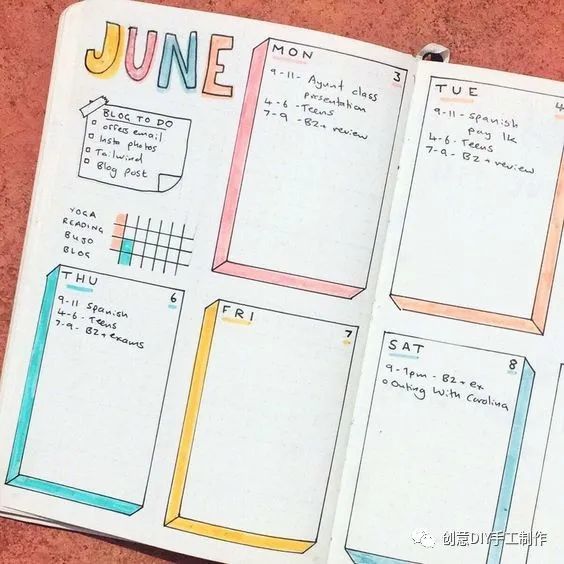 JUNE
BLOG TO DO
offers email
Insta photos
Tailwind
Blog post
YOGA
READING
BUJO
BLOG
MON
3
9-11- Ayunt class
presentation
4-6 -Teens
7-9 -B2+ review
TUE
4
9-11-Spanish
pay 1k
4-6-Teens
7-9-B2+ review
THU
6
9-11 Spanish
4-6-Teens
7-9-B2+exams
FRI
7
SAT
8
9-1pm - B2+ex
Outing with Carolina
创意DIY手工制作